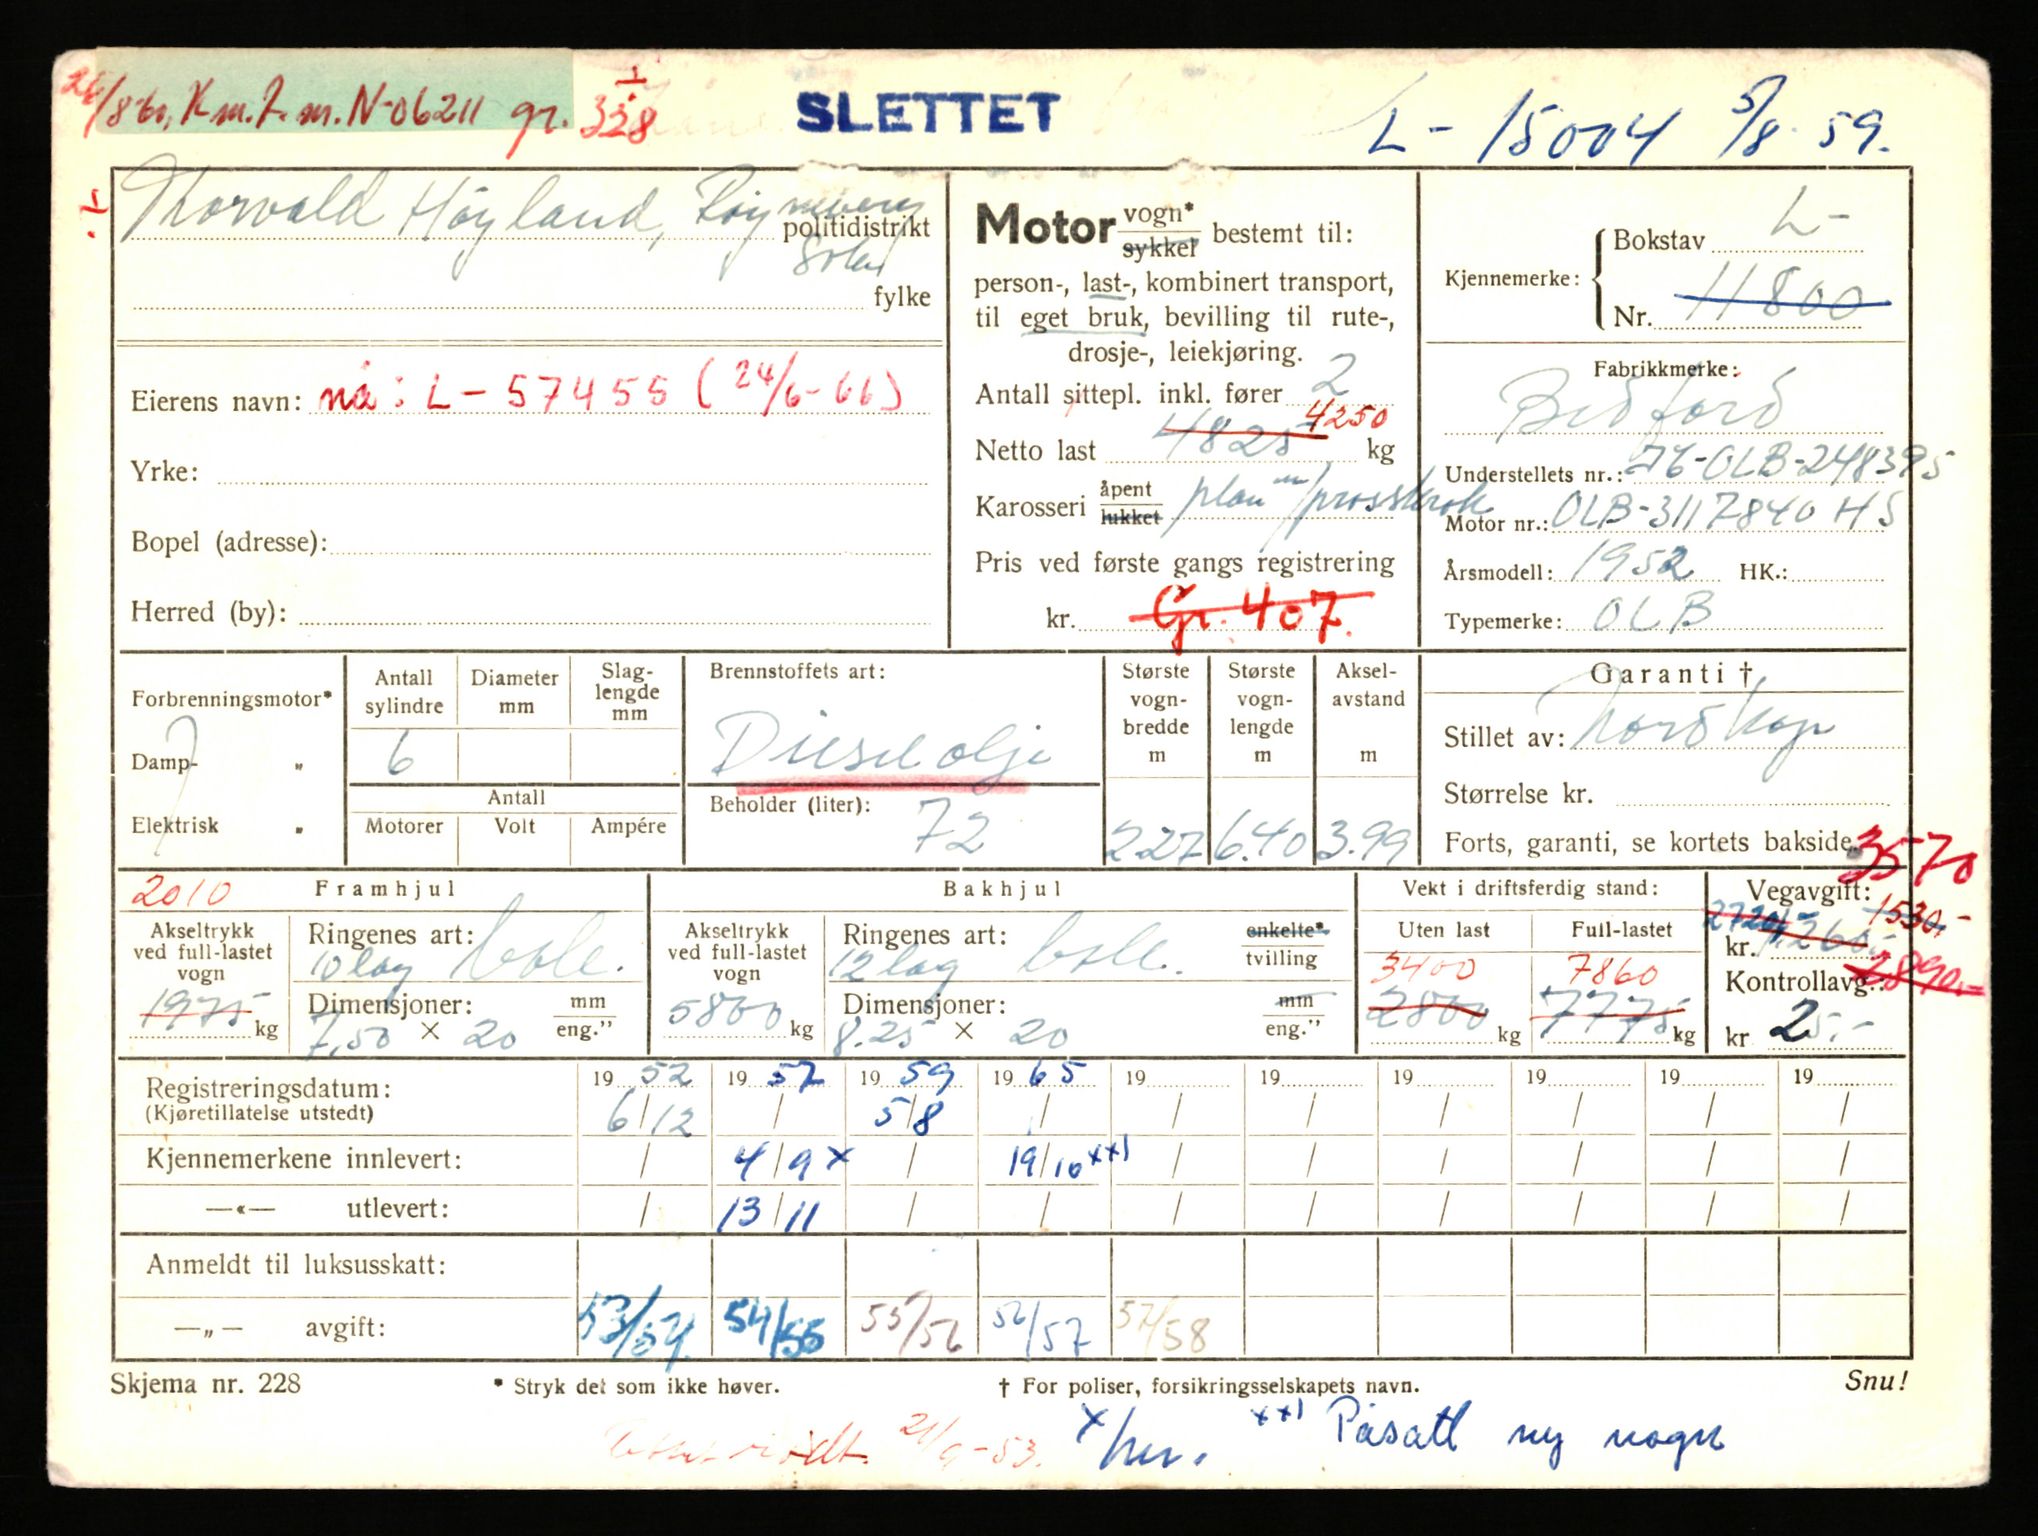 26/8-60, K.m.l. m. N-06211 gr. 328
SLETTET
L- 15004 5/8 59.
Thorvald Höyland, Röyneberg
politidistrikt
Sola
fylke
Eierens navn: nå: L-57455 (24/6-66)
Yrke:
Bopel (adresse):
Herred (by):
Motor vogn* sykkel bestemt til:
person-, last-, kombinert transport,
til eget bruk, bevilling til rute-,
drosje-, leiekjøring.
Antall sittepl. inkl. fører 2
Netto last 4825 4250 kg
Karosseri åpent lukket plan m/prosskrok
Pris ved første gangs registrering
kr. Gr. 407.
Kjennemerke: Bokstav L-
Nr. 11800
Fabrikkmerke:
Bedford
Understellets nr.: 76-OLB-248395
Motor nr.: OLB-3117840 HS
Årsmodell: 1952 HK.:
Typemerke: OLB
Forbrenningsmotor*
Damp- „
Elektrisk „
Antall sylindre 6
Diameter mm
Slaglengde mm
Antall
Motorer Volt Ampére
Brennstoffets art:
Dieselolje
Beholder (liter): 72
Største vognbredde m 2.27
Største vognlengde m 6.40
Akselavstand m 3.99
Garanti †
Stillet av: Nordkap
Størrelse kr.
Forts, garanti, se kortets bakside.
2010 Framhjul
Akseltrykk ved full-lastet vogn 1975 kg
Ringenes art: 10 lag
Dimensjoner: mm eng."
7.50 × 20
Bakhjul
Akseltrykk ved full-lastet vogn 5800 kg
Ringenes art: 12 lag
enkelte* tvilling
Dimensjoner: mm eng."
8.25 × 20
Vekt i driftsferdig stand:
Uten last Full-lastet
3400 7860
2800 kg 7775 kg
3570
Vegavgift: 1530,-
2720,- kr. 1260,-
Kontrollavg.: 2890,-
kr 25.-
Registreringsdatum: 19 52 19 57 19 59 19 65 19 19 19 19 19 19
(Kjøretillatelse utstedt) 6/12 / 5/8 / / / / / / /
Kjennemerkene innlevert: / 4/9 x / 19/10 xx) / / / / / /
—«— utlevert: / 13/11 / / / / / / / /
Anmeldt til luksusskatt:
—„— avgift: 53/54. 54/55 55/56 56/57 57/58
Skjema nr. 228 * Stryk det som ikke høver. † For poliser, forsikringsselskapets navn. Snu!
21/9-53. x/ xx) Påsatt ny vogn